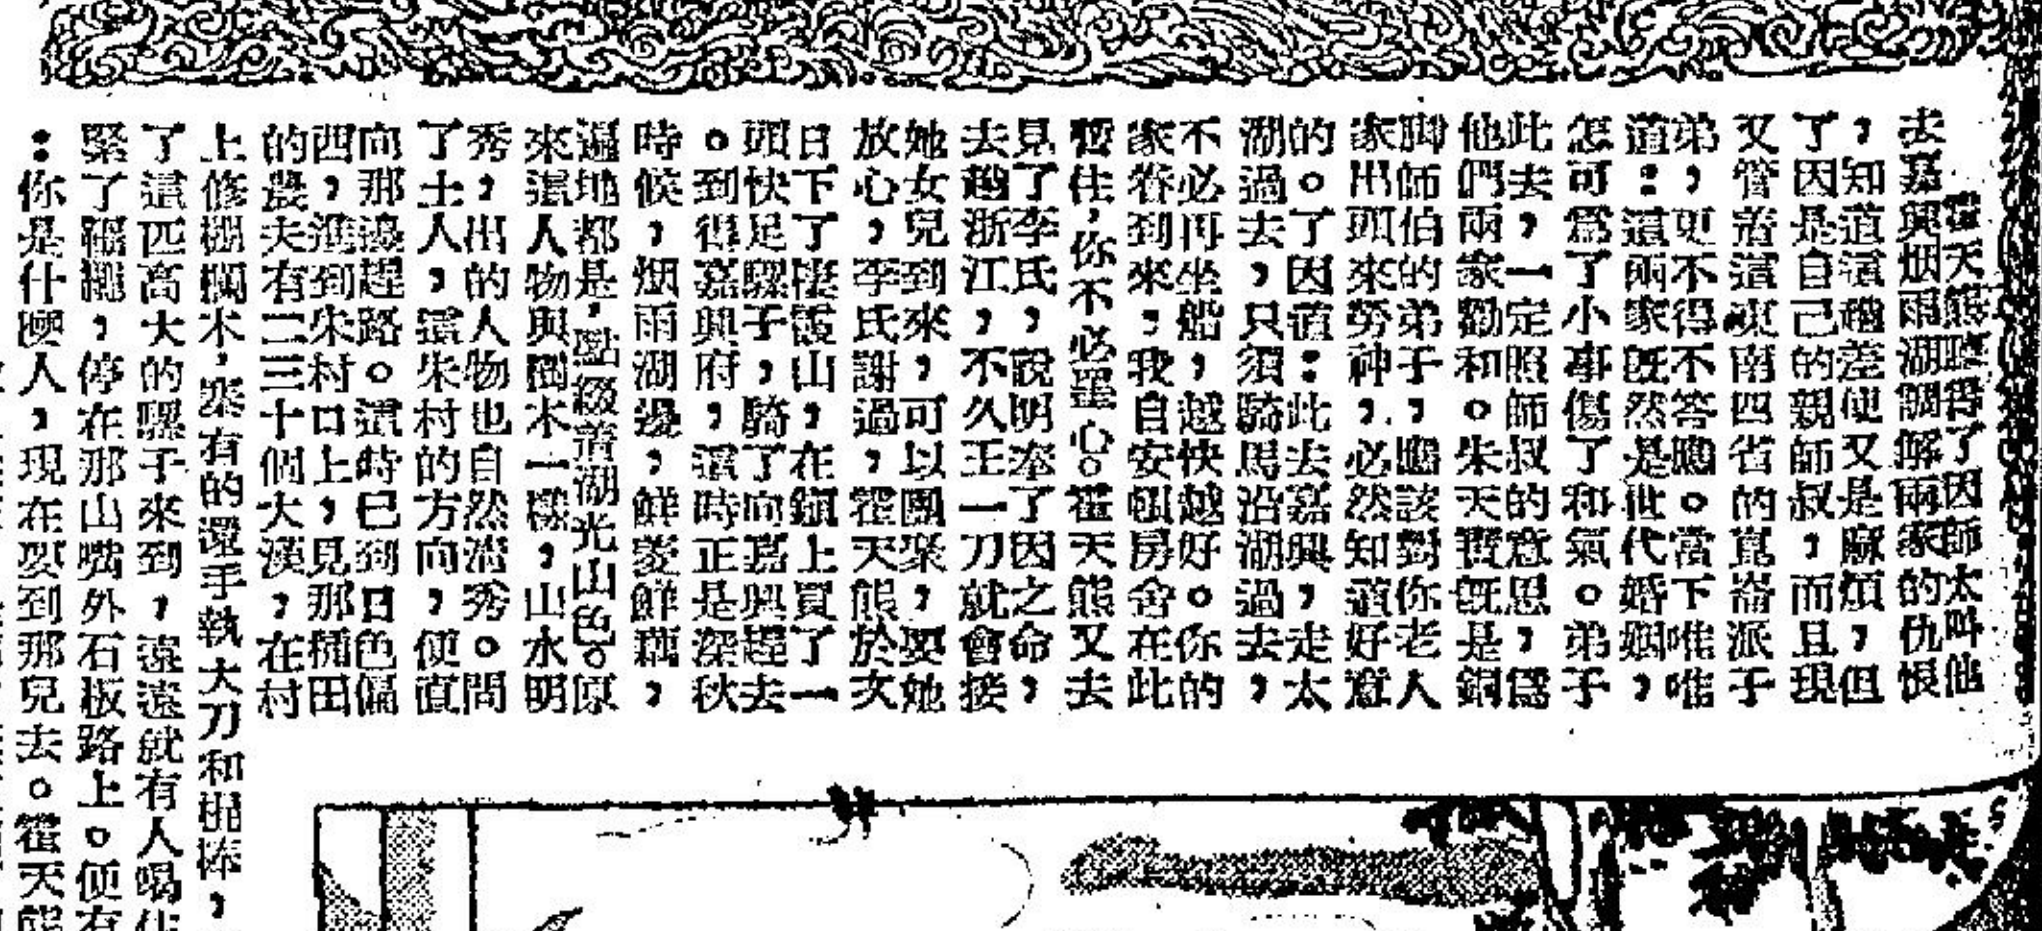 霍天熊聽得了因師太叫他
去嘉興烟雨湖調解兩家的仇恨
，知道這趟差使又是麻煩，但
了因是自己的親師叔，而且現
又管着這東南四省的崑崙派子
弟，更不得不答應。當下唯唯
道：這兩家既然是世代婚姻，
怎可爲了小事傷了和氣。弟子
此去，一定照師叔的意思，爲
他們兩家勸和。朱天寶既是銅
脚師伯的弟子，應該對你老人
家出頭來勞神，必然知道好意
的。了因道：此去嘉興，走太
湖過去，只須騎馬沿湖過去，
不必再坐船，越快越好。你的
家眷到來，我自安頓房舍在此
暫住，你不必罣心。霍天熊又去
見了李氏，說明奉了因之命，
去越浙江，不久王一刀就會接
她女兒到來，可以團聚，要她
放心，李氏謝過，霍天熊於次
日下了棲霞山，在鎭上買了一
頭快足騾子，騎了向嘉興趕去
。到得嘉興府，這時正是深秋
時候，烟雨湖邊，鮮菱鮮藕，
遍地都是，點綴着湖光山色。原
來這人物與樹木一樣，山水明
秀，出的人物也自然淸秀。問
了土人，這朱村的方向，便直
向那邊趕路。這時已到日色偏
西，進到朱村口上，見那桶田
的農夫有二三十個大漢，在村
上修棚欄木，來有的還手執大刀和棍棒，
了這匹高大的騾子來到，遠遠就有人喝住
緊了韁繩，停在那山嘴外石板路上。便有
：你是什麼人，現在要到那兒去。霍天熊